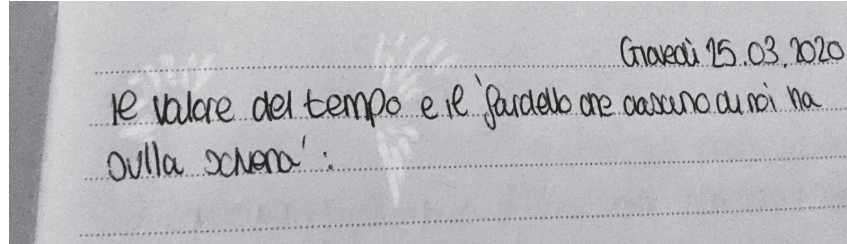 Giovedì 25.03.2020
Il valore del tempo e il 'fardello che ciascuno di noi ha
sulla schiena':